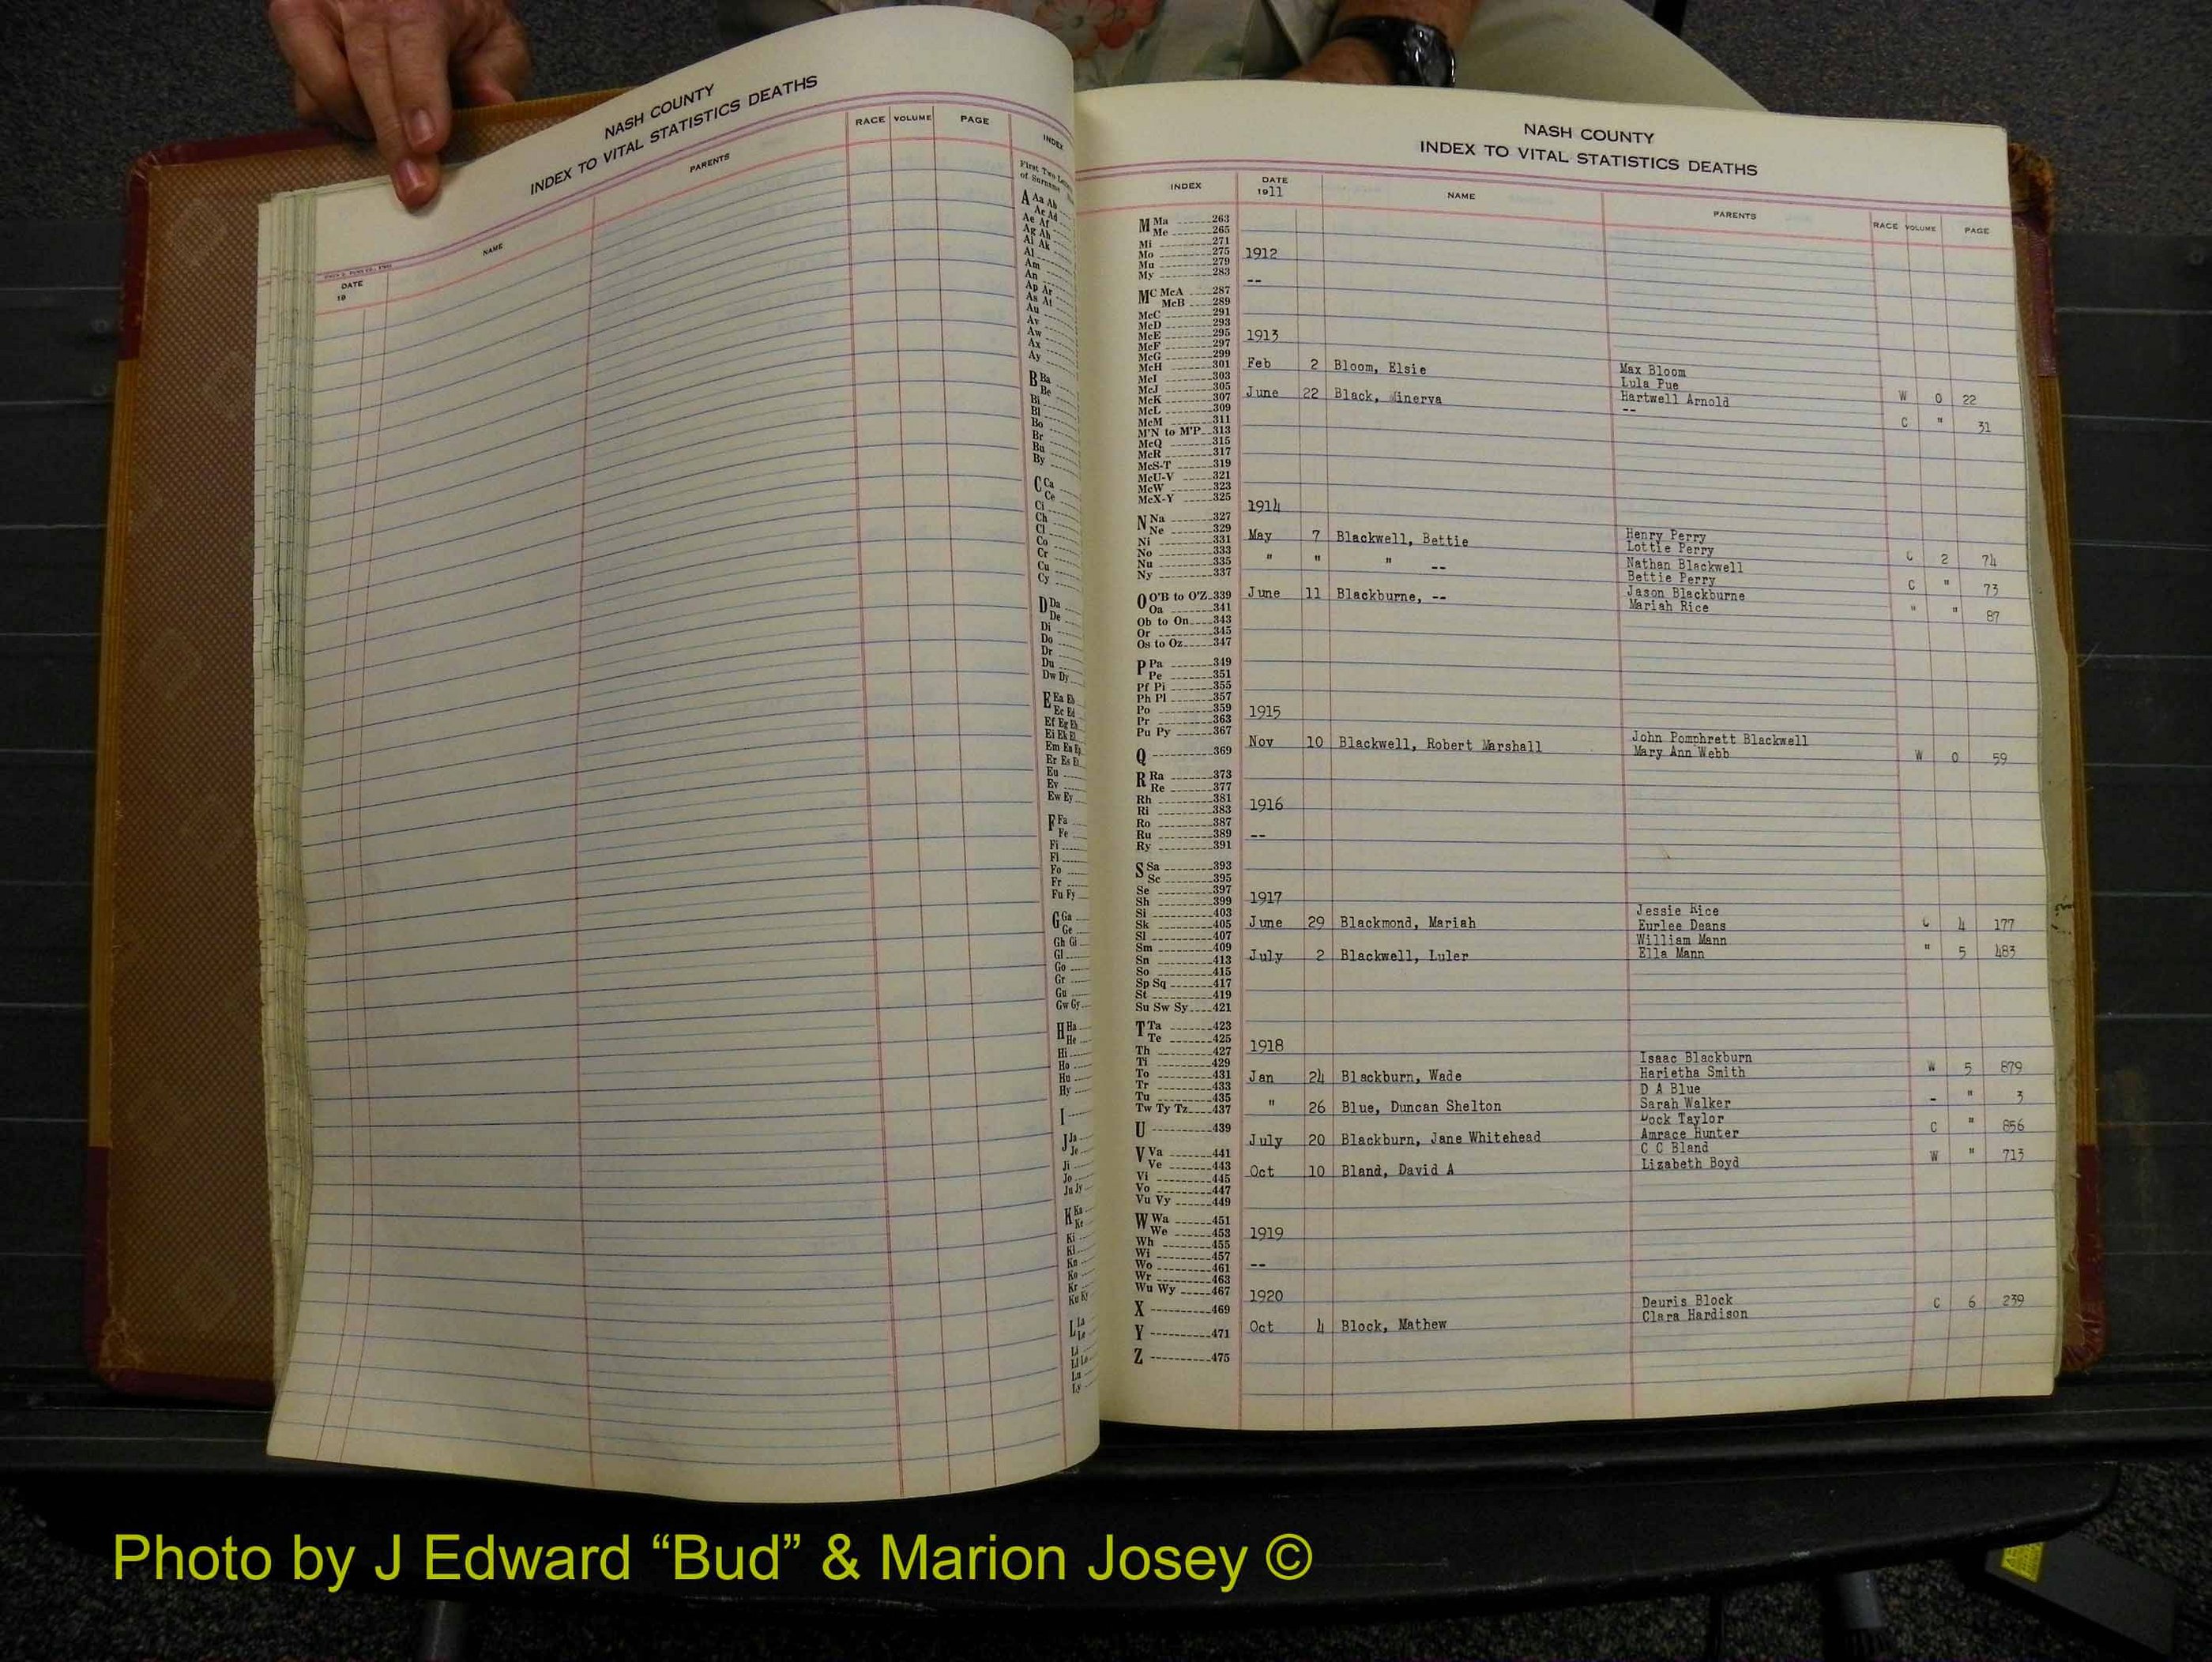 NASH COUNTY
INDEX TO VITAL STATISTICS DEATHS
DATE
19
NAME
PARENTS
RACE VOLUME PAGE
INDEX
First Two
of Surname
A Aa Ab
Ac Ad
Ae Af
Ag Ah
Ai Ak
Al
Am
An
Ap Ar
As At
Au
Av
Aw
Ax
Ay
B Ba
Be
Bi
Bl
Bo
Br
Bu
By
C Ca
Ce
Ci
Ch
Cl
Co
Cr
Cu
Cy
D Da
De
Di
Do
Dr
Du
Dw Dy
E Ea Eb
Ec Ed
Ef Eg Eh
Ei Ek El
Em En Ep
Er Es Et
Eu
Ev
Ew Ey
F Fa
Fe
Fi
Fl
Fo
Fr
Fu Fy
G Ga
Ge
Gh Gi
Gl
Go
Gr
Gu
Gw Gy
H Ha
He
Hi
Ho
Hu
Hy
I
J Ja
Je
Ji
Jo
Ju Jy
K Ka
Ke
Ki
Kl
Kn
Ko
Kr
Ku Ky
L La
Le
Li
Ll Lo
Lu
Ly
NASH COUNTY
INDEX TO VITAL STATISTICS DEATHS
INDEX DATE NAME PARENTS RACE VOLUME PAGE
1911
M Ma 263
Me 265
Mi 271
Mo 275
Mu 279
My 283
Mc McA 287
McB 289
McC 291
McD 293
McE 295
McF 297
McG 299
McH 301
McI 303
McJ 305
McK 307
McL 309
McM 311
M'N to M'P 313
McQ 315
McR 317
McS-T 319
McU-V 321
McW 323
McX-Y 325
N Na 327
Ne 329
Ni 331
No 333
Nu 335
Ny 337
O O'B to O'Z 339
Oa 341
Ob to On 343
Or 345
Os to Oz 347
P Pa 349
Pe 351
Pf Pi 355
Ph Pl 357
Po 359
Pr 363
Pu Py 367
Q 369
R Ra 373
Re 377
Rh 381
Ri 383
Ro 387
Ru 389
Ry 391
S Sa 393
Sc 395
Se 397
Sh 399
Si 403
Sk 405
Sl 407
Sm 409
Sn 413
So 415
Sp Sq 417
St 419
Su Sw Sy 421
T Ta 423
Te 425
Th 427
Ti 429
To 431
Tr 433
Tu 435
Tw Ty Tz 437
U 439
V Va 441
Ve 443
Vi 445
Vo 447
Vu Vy 449
W Wa 451
We 453
Wh 455
Wi 457
Wo 461
Wr 463
Wu Wy 467
X 469
Y 471
Z 475
1912
--
1913
Feb 2 Bloom, Elsie Max Bloom
Lula Pue W O 22
June 22 Black, Minerva Hartwell Arnold
-- C " 31
1914
May 7 Blackwell, Bettie Henry Perry
Lottie Perry C 2 74
" " " -- Nathan Blackwell
Bettie Perry C " 73
June 11 Blackburne, -- Jason Blackburne
Mariah Rice " " 87
1915
Nov 10 Blackwell, Robert Marshall John Pomphrett Blackwell
Mary Ann Webb W O 59
1916
--
1917
Jessie Rice
June 29 Blackmond, Mariah Eurlee Deans C 4 177
William Mann
July 2 Blackwell, Luler Ella Mann " 5 483
1918
Isaac Blackburn
Jan 24 Blackburn, Wade Harietha Smith W 5 879
D A Blue
" 26 Blue, Duncan Shelton Sarah Walker - " 3
Dock Taylor
July 20 Blackburn, Jane Whitehead Amrace Hunter C " 856
C C Bland
Oct 10 Bland, David A Lizabeth Boyd W " 713
1919
--
1920
Deuris Block
Oct 4 Block, Mathew Clara Hardison C 6 239
Photo by J Edward “Bud” & Marion Josey ©